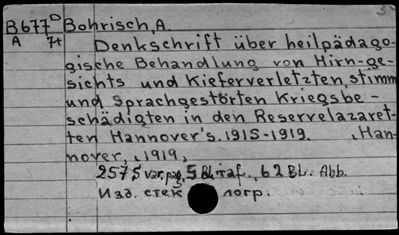 B677D Bohrisch, A.
A 7t
Denkschrift über heilpädago-
gische Behandlung von Hirn-ge-
sichts und Kieferverletzten, stimm
und sprachgestörten Kriegsbe-
schädigten in den Reservelazaret-
ten Hannover's. 1915-1919. Han-
nover, 1919,
257 S. var. pag. 5 Bl. Taf., 62 Bl. Abb.
Изд. стек логр.